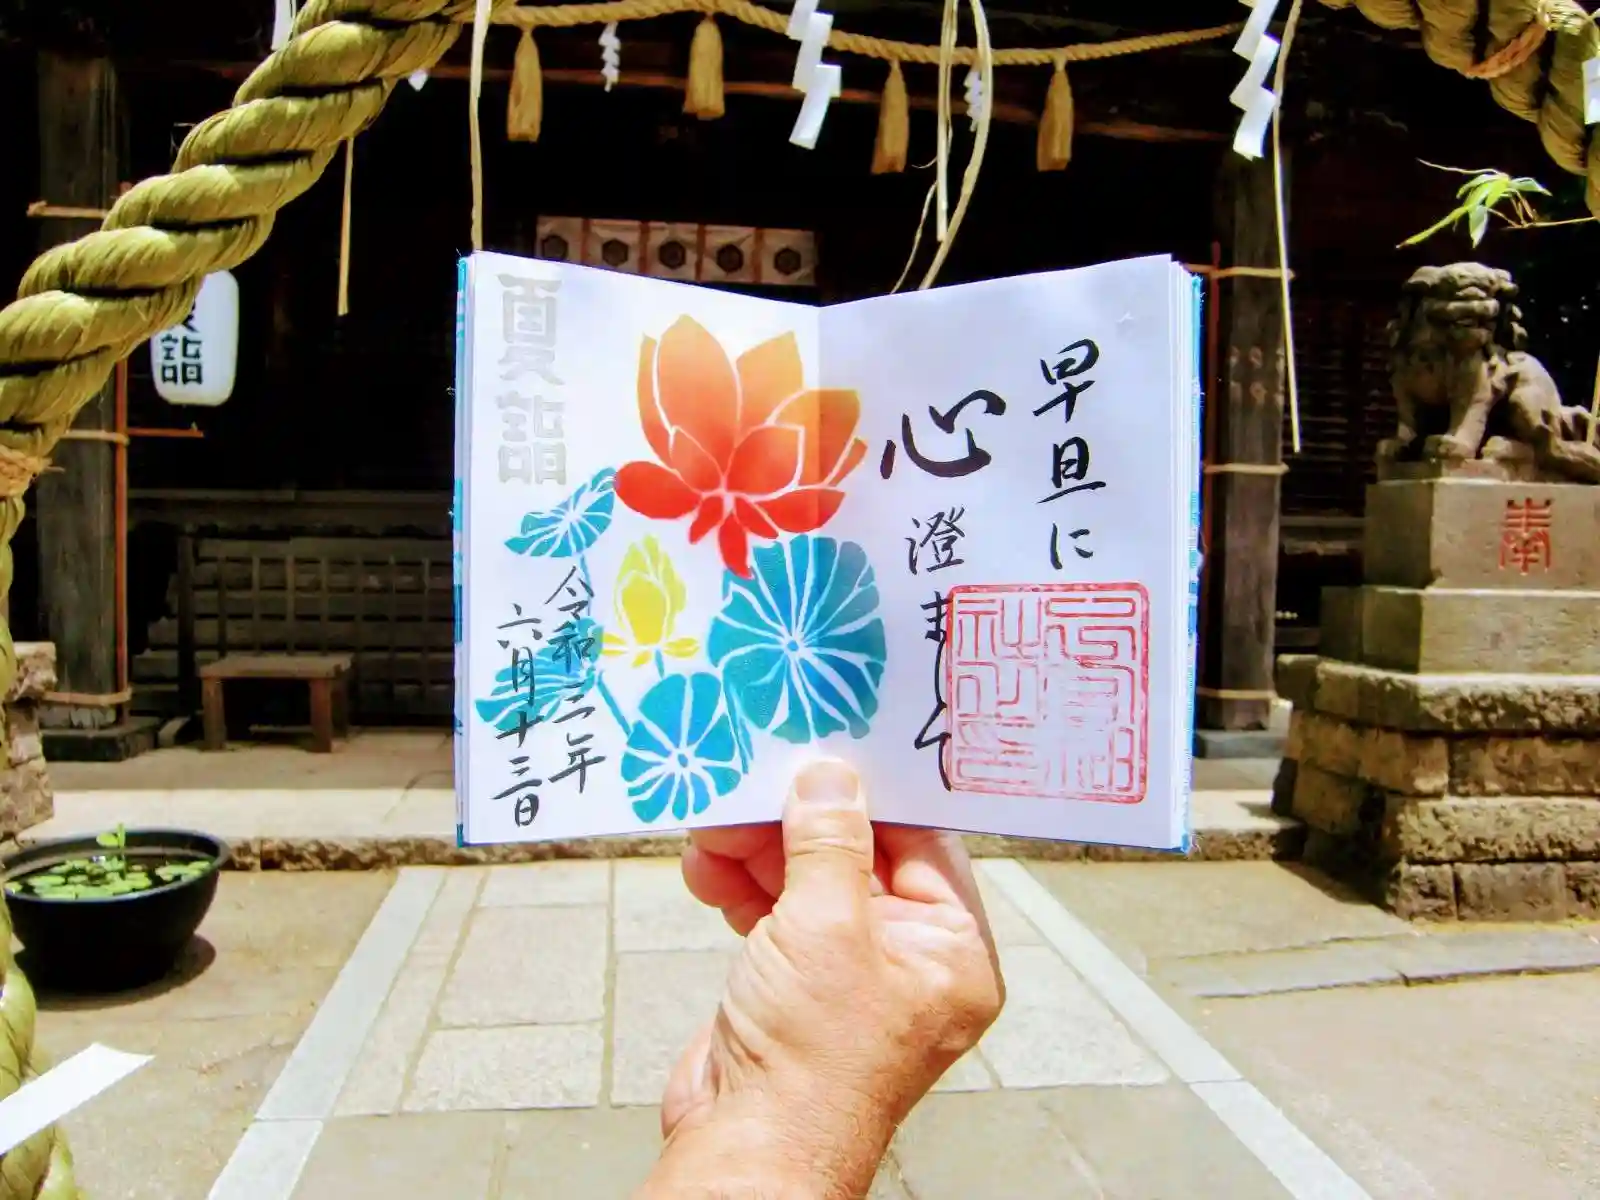 早旦に
心澄ま
夏詣
令和二年
六月十三日
詣
奉